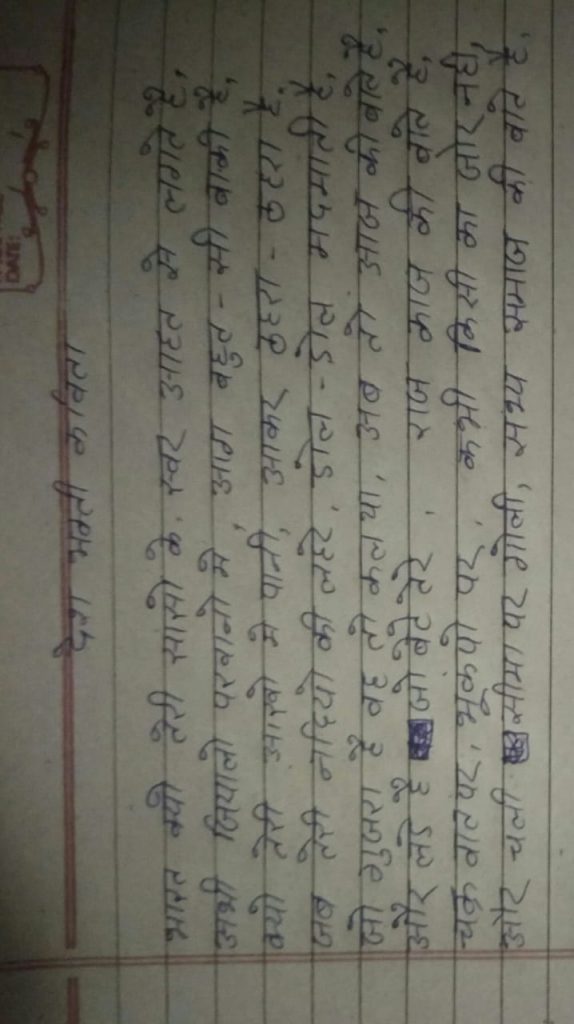 DATE:
देश भक्ती कविता
भारत क्यो तेरी सासो के, स्वर आहत से लगते है,
अभी जियाले परवानो मे, आग बहुत-सी बाकी है,
क्यो तेरी आखो मे पानी, आकर ठहरा-ठहरा है,
जब तेरी नदियो की लहरे, डोल-डोल मदमाती है,
जो गुजरा है वह तो कल था, अब तो आज की बाते है,
और लडे है जो बेटे तेरे, राज काज की बाते है,
चक्रवात पर, भूकंपो पर, कभी किसी का जोर नही,
और चली सीमा पर गोली, सभ्य समाज की बाते है,